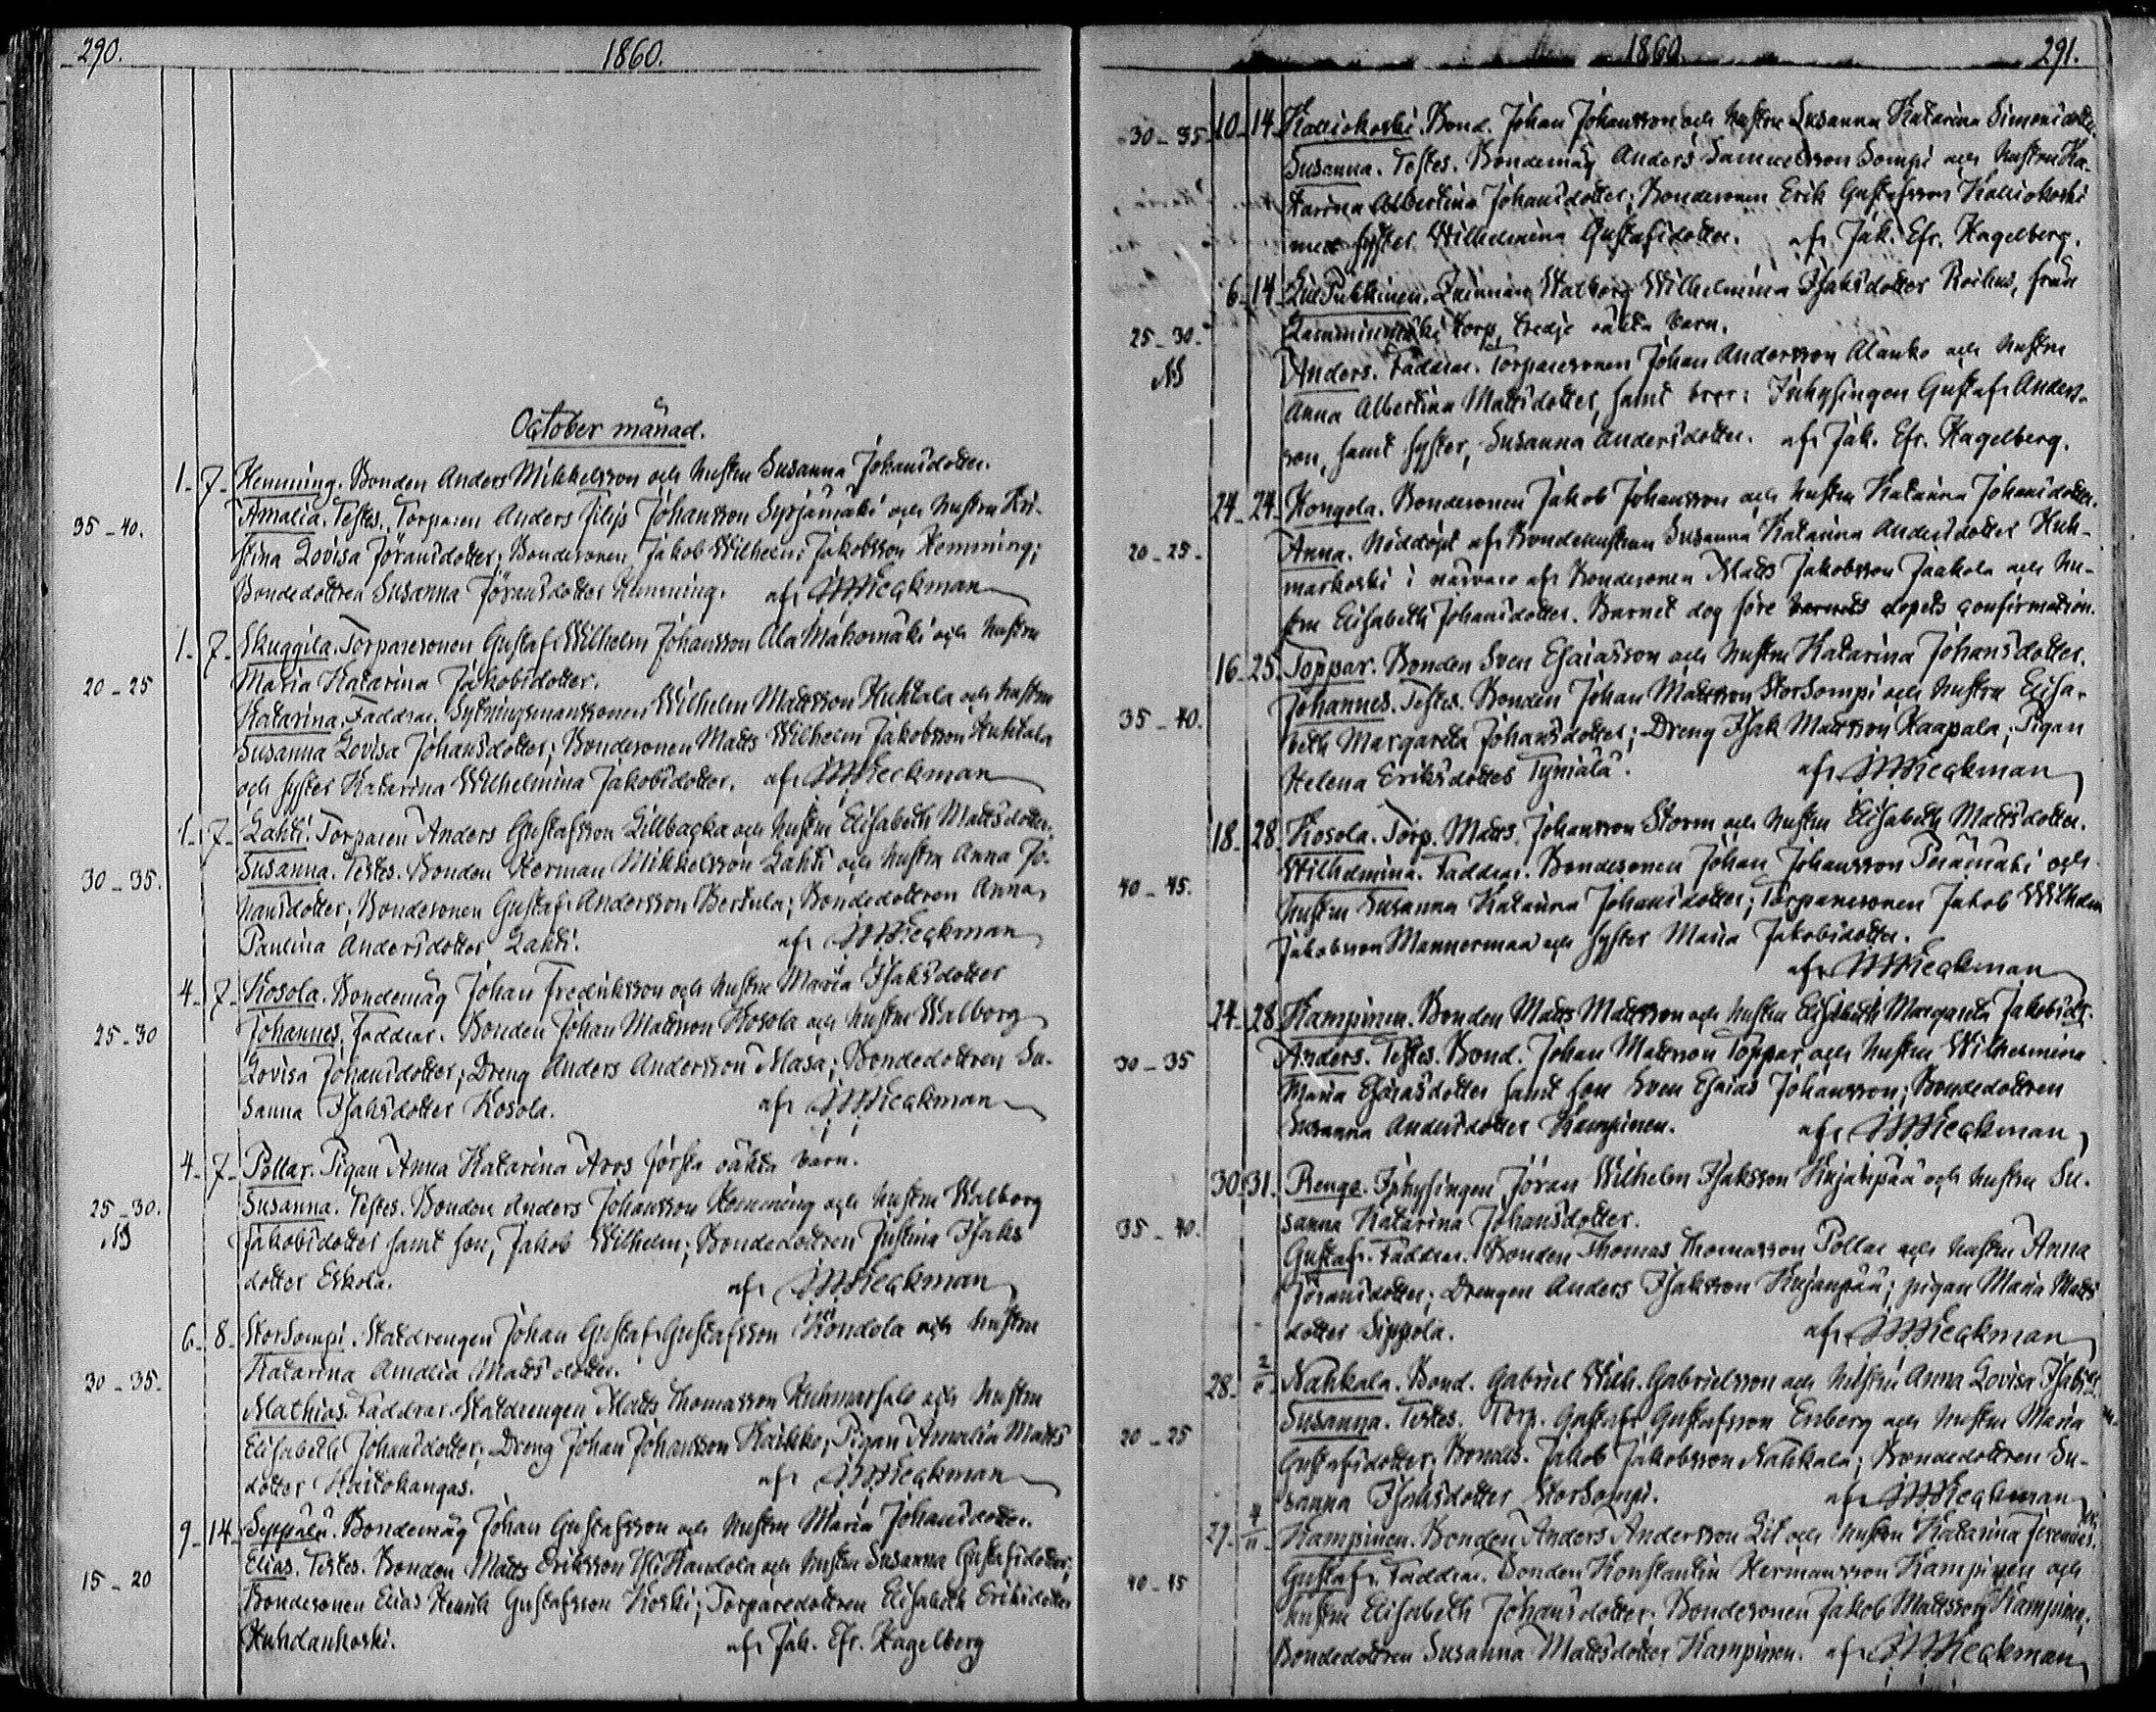 290. 1860.
October månad.
1. 7. Hemming. Bonden Anders Mikkelsson och hustru Susanna Johansdotter.
35-40. Amalia. Testes. Torparen Anders Filip Johansson Syrjämäki och hustru Kri-
stina Lovisa Jöransdotter; Bondesonen Jakob Wilhelm Jakobsson Hemming;
Bondedottren Susanna Jöransdotter Hemming. af
1. 7. Skuggila. Torparesonen Gustaf Wilhelm Johansson Ala Mäkomäki och hustru
20-25 Maria Katarina Jakobsdotter.
Katarina. Faddrar. Sytningsmanssonen Wilhelm Mattsson Huhtala och hustru
Susanna Lovisa Johansdotter; Bondesonen Matts Wilhelm Jakobsson Huhtala
och syster Katarina Wilhelmina Jakobsdotter. af
1. 7. Lahti. Torparen Anders Gustafsson Lillbacka och hustru Elisabeth Mattsdotter.
30-35. Susanna. Testes. Bonden Herman Mikkelsson Lahti och hustru Anna Jo-
hansdotter; Bondesonen Gustaf Andersson Bertula; Bondedottren Anna
Paulina Andersdotter Lahti. af
4. 7. Kosola. Bondemåg Johan Fredriksson och hustru Maria Isaksdotter
25-30 Johannes. Faddrar. Bonden Johan Mattsson Kosola och hustru Walborg
Lovisa Johansdotter; Dreng Anders Andersson Masa; Bondedottren Su-
sanna Isaksdotter Kosola. af
4. 7. Pollar. Pigan Anna Katarina Aros första oäkta barn.
25-30. Susanna. Testes. Bonden Anders Johansson Hemming och hustru Walborg
Jakobsdotter samt son, Jakob Wilhelm; Bondedottren Justina Isaks
dotter Eskola. af
6. 8. Storsompi. Statdrengen Johan Gustaf Gustafsson Kondola och hustru
30-35. Katarina Amalia Mattsdotter.
Mathias. Faddrar. Statdrengen Matts Thomasson Huhmarsalo och hustru
Elisabeth Johansdotter; Dreng Johan Johansson Kaikko; Pigan Amalia Matts
dotter Haitokangas. af
9. 14. Seppälä. Bondemåg Johan Gustafsson och hustru Maria Johansdotter.
15-20 Elias. Testes. Bonden Matts Eriksson Yli Kandola och hustru Susanna Gustafsdotter;
Bondesonen Elias Henrik Gustafsson Koski; Torparedottren Elisabeth Eriksdotter
Huhdankoski. af Jak. Efr. Hagelberg
1860. 291.
30-35 10. 14. Kalliokoski. Bond. Johan Johansson och hustru Susanna Katarina Simonsdotter.
Susanna. Testes. Bondemåg Anders Samuelsson Sompi och hustru Ka-
tarina Albertina Johansdotter; Bondesonen Erik Gustafsson Kalliokoski
med syster Wilhelmina Gustafsdotter. af Jak. Efr. Hagelberg.
6. 14. Walborg Wilhelmina Isaksdotter från
25-30. torp, tredje oäkta barn.
Anders. Faddrar. Torparesonen Johan Andersson Alanko och hustru
Anna Albertina Mattsdotter, samt bror: Inhysingen Gustaf Anders-
son, samt syster, Susanna Andersdotter. af Jak. Efr. Hagelberg.
24. 24. Kongola. Bondesonen Jakob Johansson och hustru Katarina Johansdotter.
20-25. Anna. Nöddöpt af Bondehustrun Susanna Katarina Andersdotter Huh-
markoski i närvaro af Bondesonen Matts Jakobsson Jaakola och hu-
stru Elisabeth Johansdotter. Barnet dog före barnets dopets confirmation.
16. 25. Toppar. Bonden Sven Esaiasson och hustru Katarina Johansdotter.
35-40. Johannes. Testes. Bonden Johan Mattsson Storsompi och hustru Elisa-
beth Margareta Johansdotter; Dreng Isak Mattsson Kaapala; Pigan
Helena Eriksdotter Tyniälä. af
18. 28. Kosola. Torp. Matts Johansson Storm och hustru Elisabeth Mattsdotter.
40-45. Wilhelmina. Faddrar. Bondesonen Johan Johansson och
hustru Susanna Katarina Johansdotter; Torparesonen Jakob Wilhelm
Jakobsson Mannermaa och syster Maria Jakobsdotter.
af
24. 28. Kampinen. Bonden Matts Mattsson och hustru Elisabeth Margareta Jakobsdt.
30-35 Anders. Testes. Bond. Johan Mattsson Toppar och hustru Wilhelmina
Maria Esaiasdotter samt son Sven Esaias Johansson; Bondedottren
Susanna Andersdotter Kampinen. af
30. 31. Renge. Inhysingen Jöran Wilhelm Isaksson Kujanpää och hustru Su-
35-40. sanna Katarina Johansdotter.
Gustaf. Faddrar. Bonden Thomas Thomasson Pollar och hustru Anna
Jöransdotter; Drengen Anders Isaksson Kujanpää; pigan Maria Matts
dotter Sippola. af
28. 2/11. Nahkala. Bond. Gabriel Wilh. Gabrielsson och hustru Anna Lovisa Isaksdt.
20-25 Susanna. Testes. Torp. Gustaf Gustafsson Enberg och hustru Maria
Gustafsdotter; Bondes. Jakob Jakobsson Nahkala; Bondedottren Su-
sanna Isaksdotter Storsompi. af
29. 4/11. Kampinen. Bonden Anders Andersson Lit och hustru Katarina
40-45 Gustaf. Faddrar. Bonden Konstantin Hermansson Kampinen och
hustru Elisabeth Johansdotter; Bondesonen Jakob Mattsson Kampinen;
Bondedottren Susanna Mattsdotter Kampinen. af